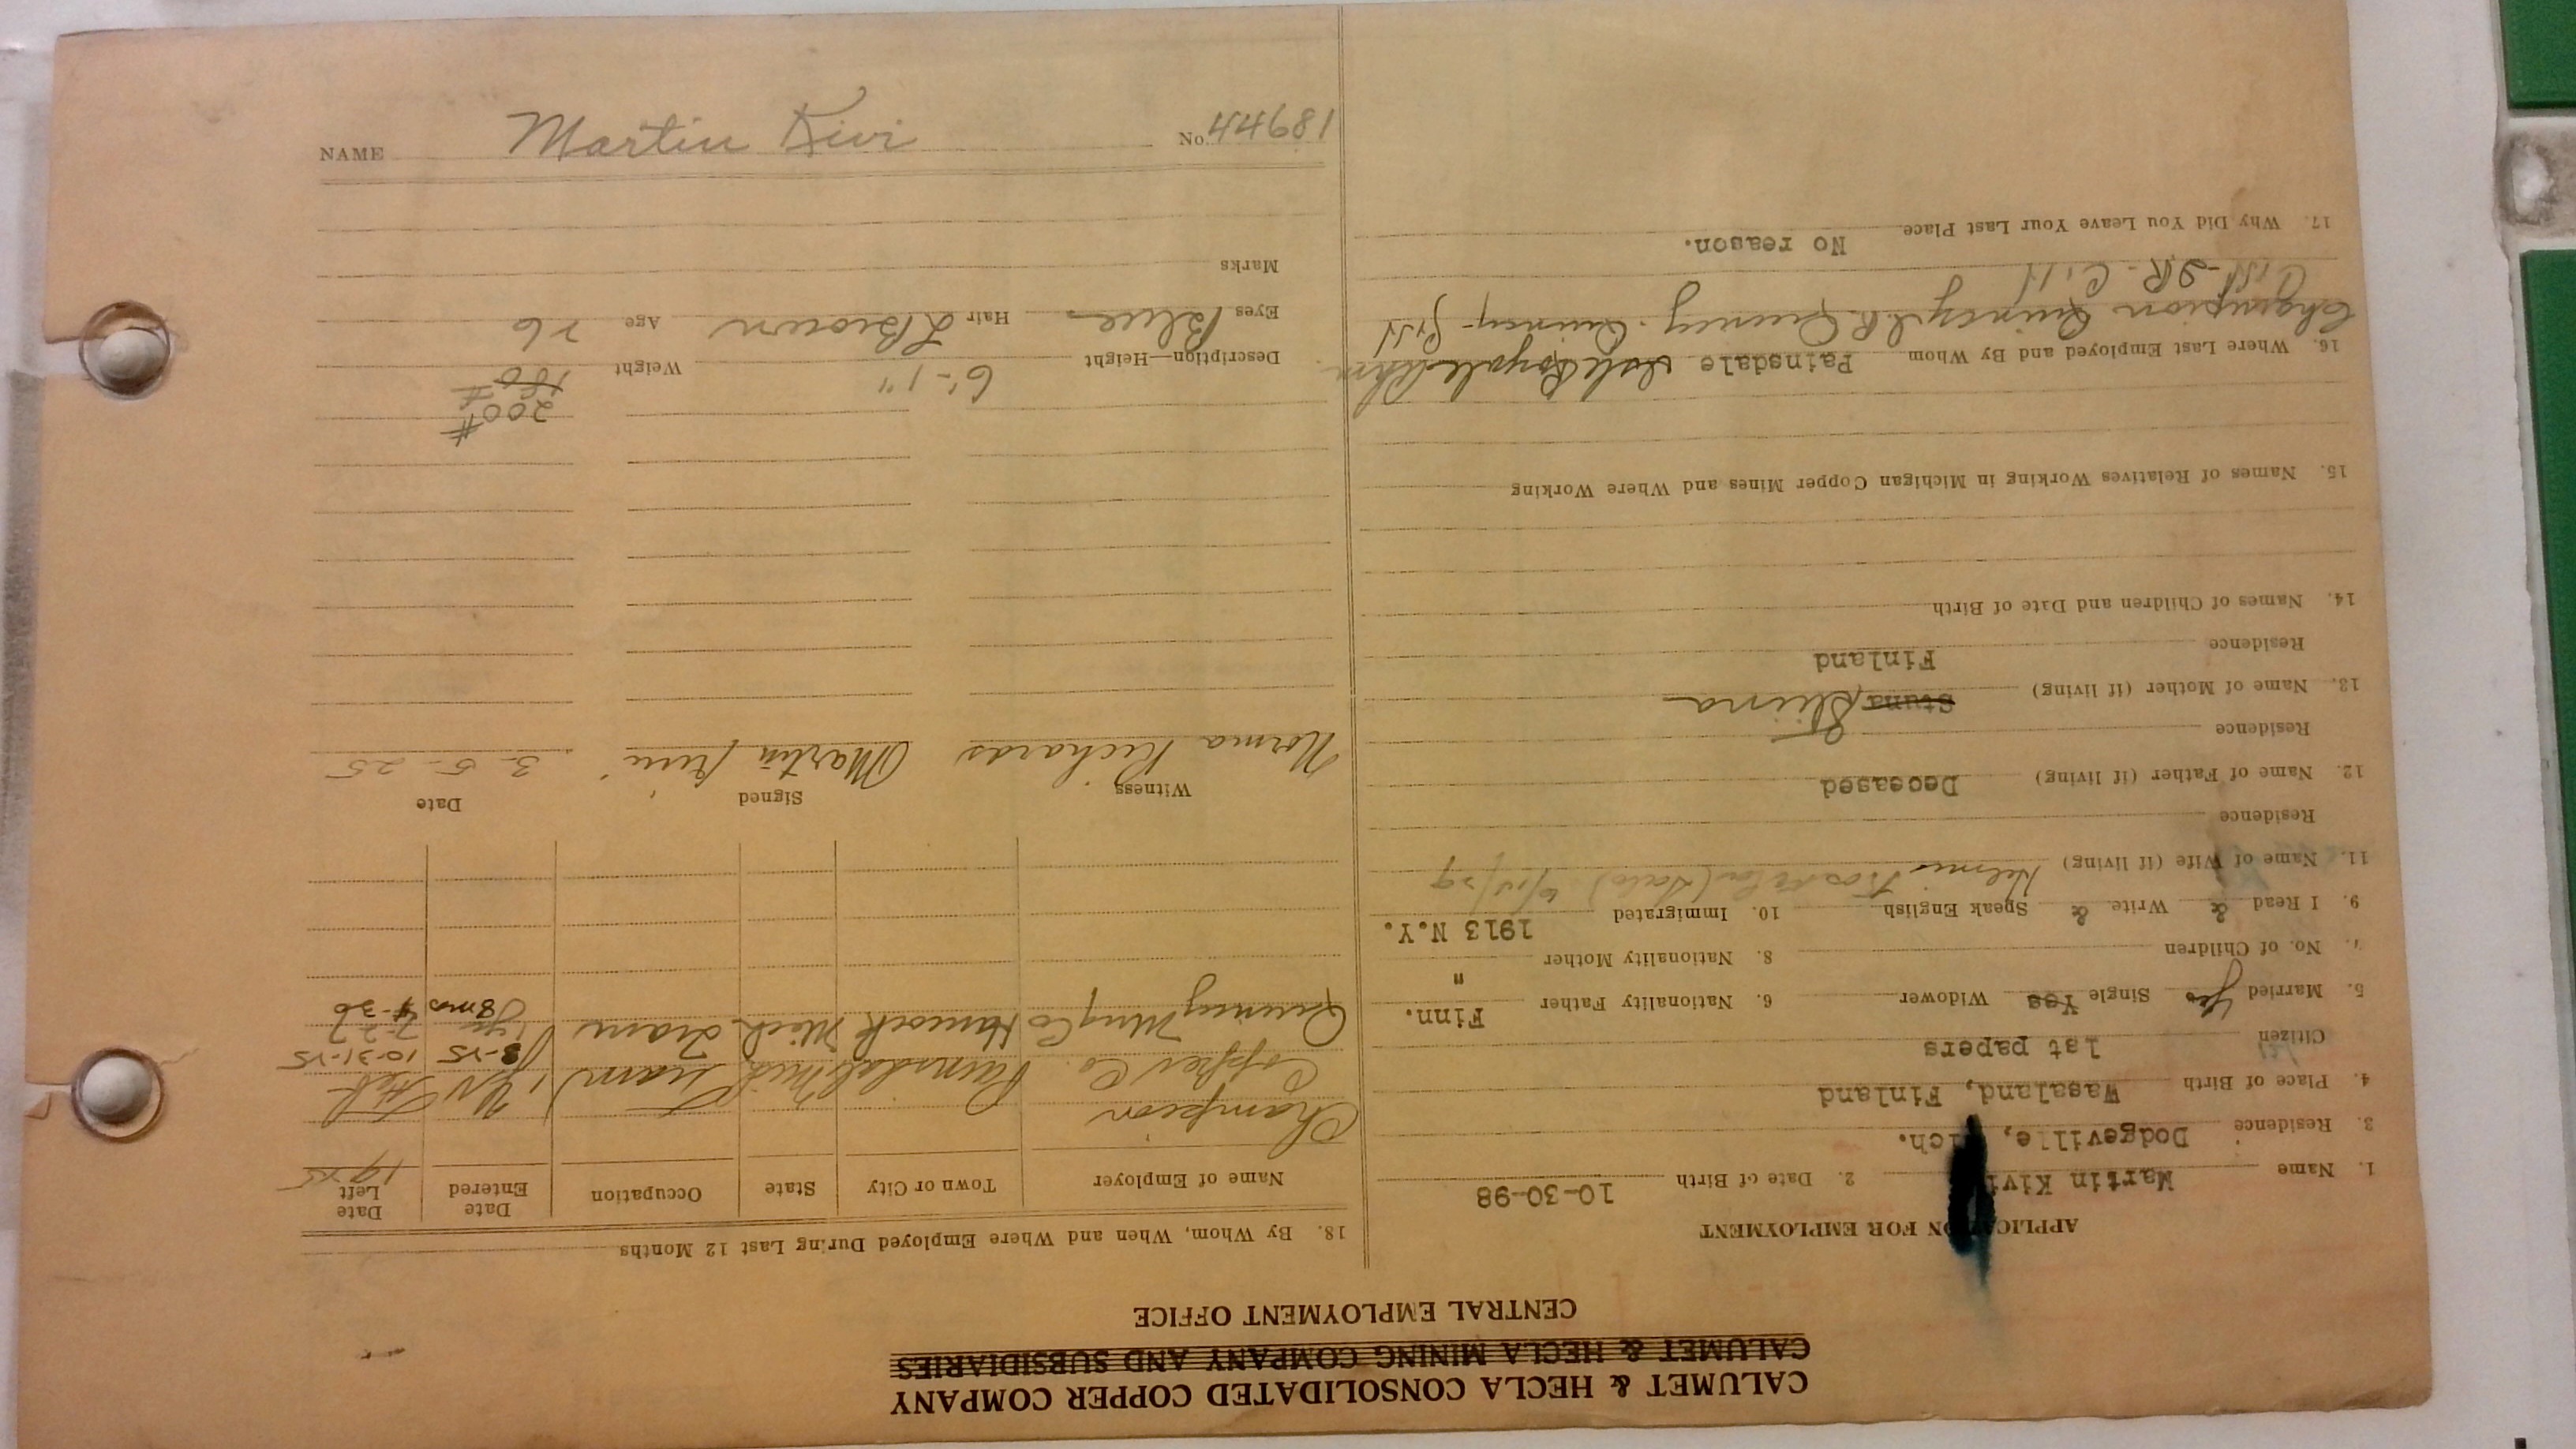 CALUMET & HECLA CONSOLIDATED COPPER COMPANY
CALUMET & HECLA MINING COMPANY AND SUBSIDIARIES
CENTRAL EMPLOYMENT OFFICE
APPLICATION FOR EMPLOYMENT
1. Name Martin Kivi 2. Date of Birth 10-30-98
3. Residence Dodgeville, Mich.
4. Place of Birth Wasaland, Finland
Citizen 1st papers
5. Married Yes Single Yes Widower 6. Nationality Father Finn.
7. No. of Children 8. Nationality Mother "
9. I Read & Write & Speak English 10. Immigrated 1913 N.Y.
11. Name of Wife (if living) Helmi
Residence
12. Name of Father (if living) Deceased
Residence
13. Name of Mother (if living) Stuna Stiina
Residence Finland
14. Names of Children and Date of Birth
15. Names of Relatives Working in Michigan Copper Mines and Where Working
16. Where Last Employed and By Whom Painsdale Isle Royale
Champion Quincy Quincy. Quincy
17. Why Did You Leave Your Last Place No reason.
18. By Whom, When and Where Employed During Last 12 Months
Name of Employer Town or City State Occupation Date Entered Date Left
Champion
Copper Co. Painsdale Mich Tram 10-31-25
Quincy Mng Co Hancock Mich Tram 1 yr 7-27
8 mos 4-30
Witness Signed Date
Norma Richards Martin Kivi 3-5-25
200#
Description—Height 6'-1" Weight 180#
Eyes Blue Hair L Brown Age 26
Marks
NAME Martin Kivi No. 44681